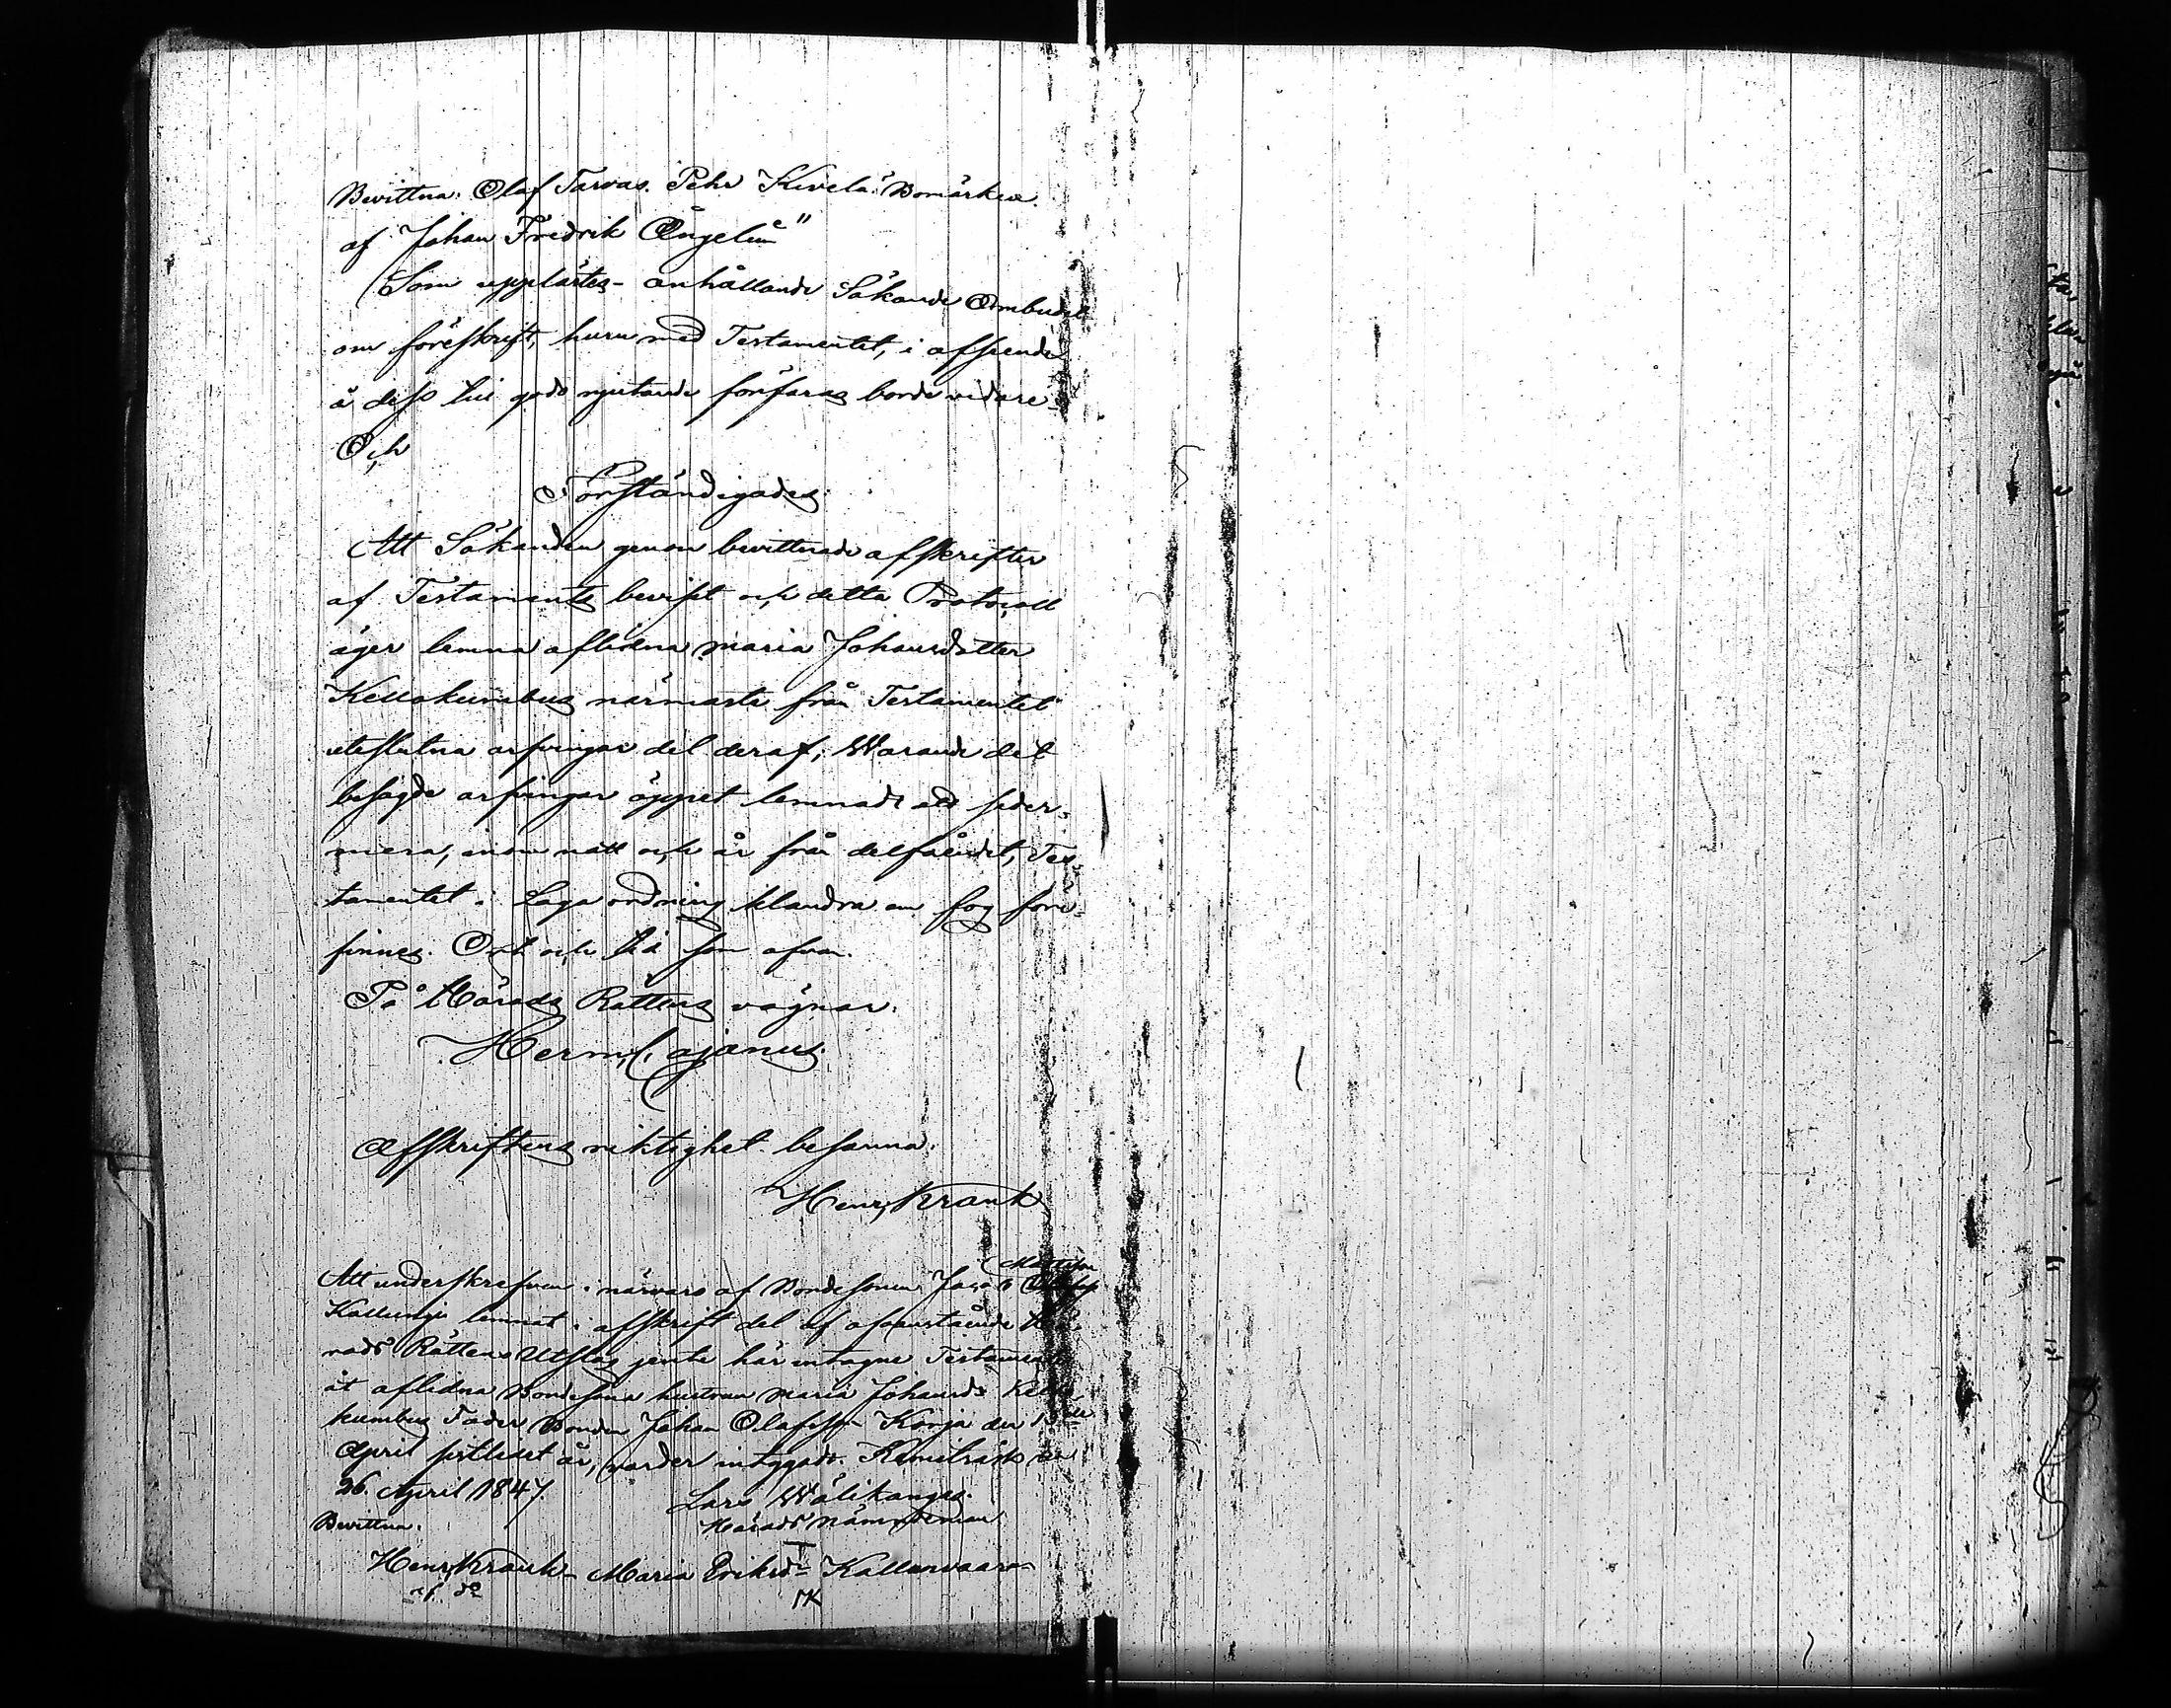 Bevittna: Olaf Tarvas. Pehr Kivelä." Bomärken
af Johan Fredrik Ångelin"
Som upplästes – anhållande Sökande Ombudet
om föreskrift, huru med Testamentet, i afseende
å dess till godo njutande förfaras borde vidare
Och
Förständigades
Att Sökanden genom bevittnade afskrifter
af Testaments beviset och detta Protocoll
äger lemna aflidna Maria Johansdotter
Kellokumbus närmaste från Testamentet
uteslutna arfvingar del deraf; Warande det
besagde arfvingar öppet lemnadt att seder-
mera, inom natt och år från delfåendet, Tes-
tamentet i Laga ordning klandra om fog före-
finnes. Ort och tid som ofvan.
På Härads Rättens vägnar.
Herm. Cajanus.
Afskriftens riktighet besanna.
Henr. Krank
Mattsson
Att underskrefven i närvaro af Bondesonen Jacob
Kallungi lemnat i afskrift del af ofvanstående Hä-
rads Rättens Utslag jemte här intagne Testament
åt aflidna Bondesona hustrun Maria Johansdr Kello-
kumbus Fader Bonden Johan Olafsson Korja den
April sistledet år, varder intygadt. Kemiträsk den
26. April 1847.
Lars Wälikangas.
Härads Nämndeman
Bevittna.
Henr. Krank – Maria Eriksdr Kallunvaara